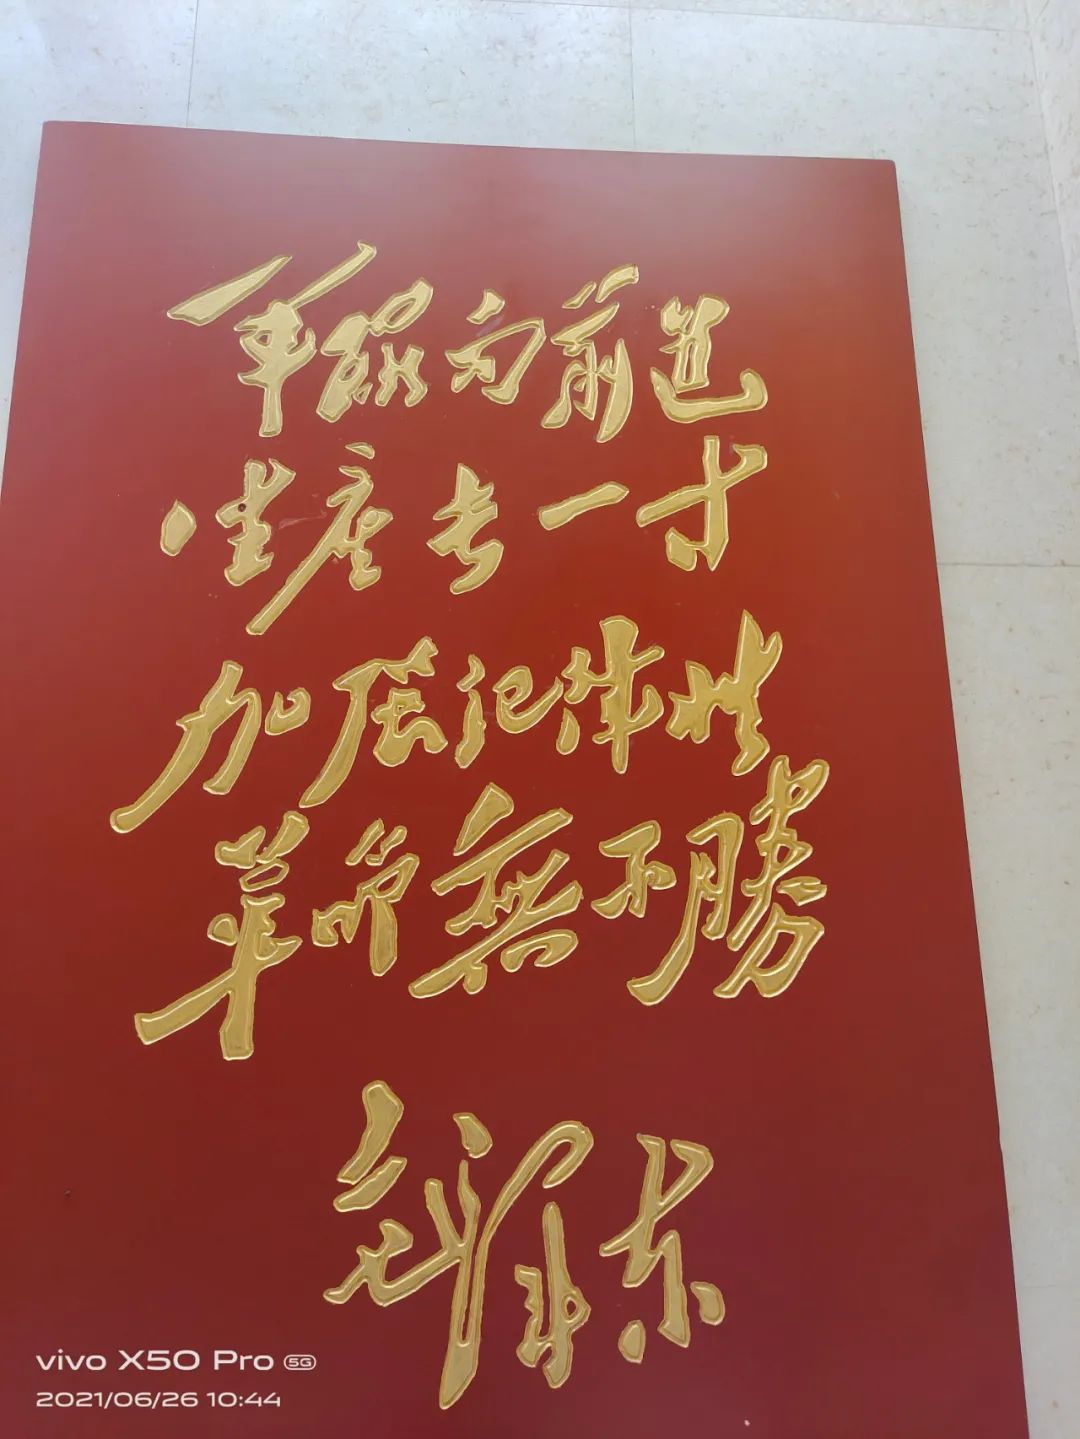 军队向前进
生产长一寸
加强纪律性
革命無不勝
毛泽东
vivo X50 Pro 5G
2021/06/26 10:44